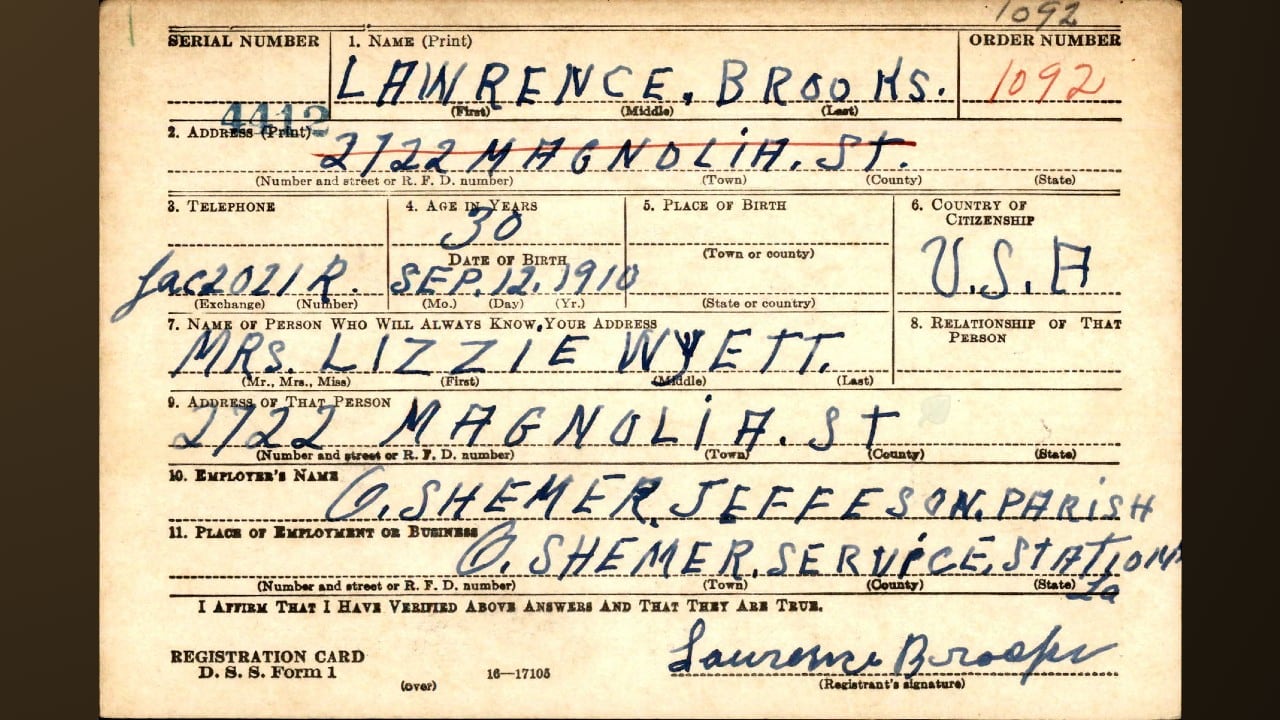 1092
SERIAL NUMBER 1. NAME (Print) ORDER NUMBER
LAWRENCE. BROOKS. 1092
4412 (First) (Middle) (Last)
2. ADDRESS (Print)
2722 MAGNOLIA. ST.
(Number and street or R. F. D. number) (Town) (County) (State)
3. TELEPHONE 4. AGE IN YEARS 5. PLACE OF BIRTH 6. COUNTRY OF CITIZENSHIP
30
DATE OF BIRTH (Town or county) U.S.A
Jac2021R. SEP. 12. 1910
(Exchange) (Number) (Mo.) (Day) (Yr.) (State or country)
7. NAME OF PERSON WHO WILL ALWAYS KNOW YOUR ADDRESS 8. RELATIONSHIP OF THAT PERSON
MRS. LIZZIE WYETT.
(Mr., Mrs., Miss) (First) (Middle) (Last)
9. ADDRESS OF THAT PERSON
2722 MAGNOLIA. ST
(Number and street or R. F. D. number) (Town) (County) (State)
10. EMPLOYER'S NAME
O. SHEMER. JEFFESON. PARISH
11. PLACE OF EMPLOYMENT OR BUSINESS
O. SHEMER. SERVICE. STATION
(Number and street or R. F. D. number) (Town) (County) (State) La
I AFFIRM THAT I HAVE VERIFIED ABOVE ANSWERS AND THAT THEY ARE TRUE.
REGISTRATION CARD Lawrence Brooks
D. S. S. Form 1 16—17105
(over) (Registrant's signature)